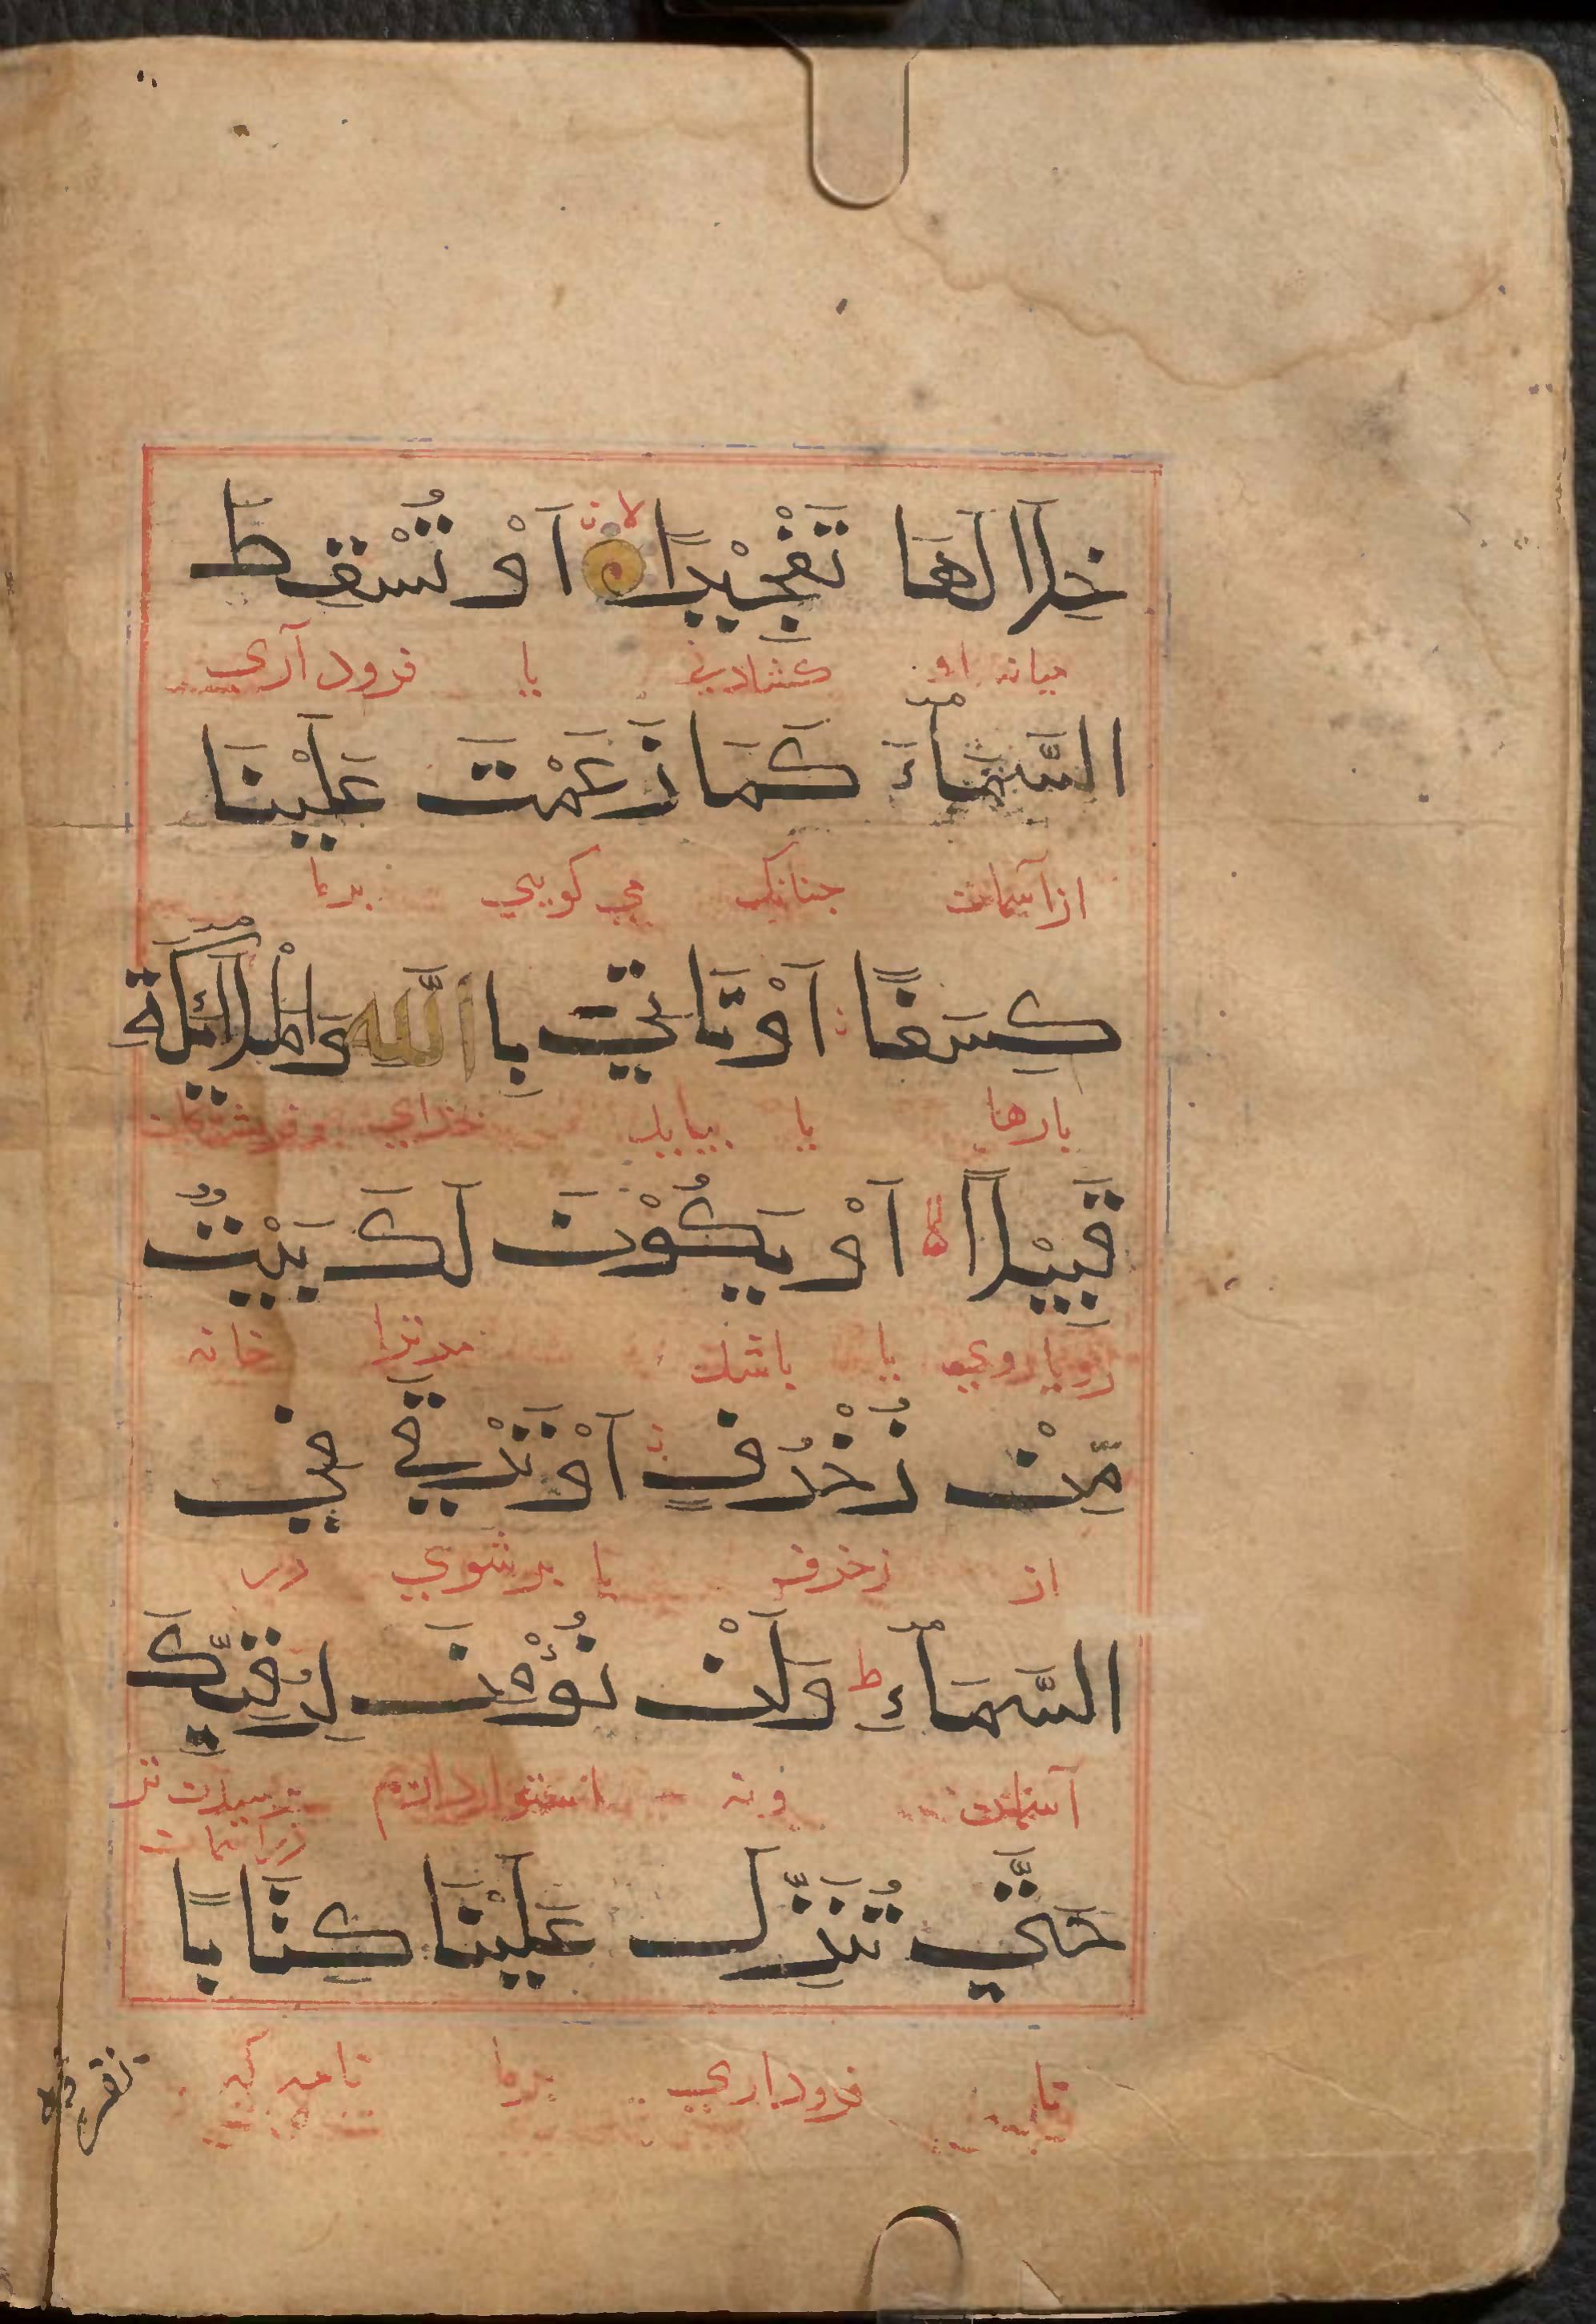 خِلَالَهَا تَفْجِيْرًا لا اَوْ تُسْقِطَ
ميانه او كشادني يا فرود آري
السَّمَآءَ كَمَا زَعَمْتَ عَلَيْنَا
از آسمان جنانك مي كويي برما
كِسَفًا اَوْ تَاْتِيَ بِاللّٰهِ وَالْمَلَآئِكَةِ
بارها يا بيايد خداي و فرشتكان
قَبِيْلًا اَوْ يَكُوْنَ لَكَ بَيْتٌ
رويا روي يا باشد مرترا خانه
مِّنْ زُخْرُفٍ اَوْ تَرْقٰي فِي
از زخرف يا برشوي در
السَّمَآءِ ط وَلَنْ نُّؤْمِنَ لِرُقِيِّكَ
آسمان و نه استوار داريم
حَتّٰي تُنَزِّلَ عَلَيْنَا كِتَابًا
تا فروداري برما نامه كه
نقرؤه